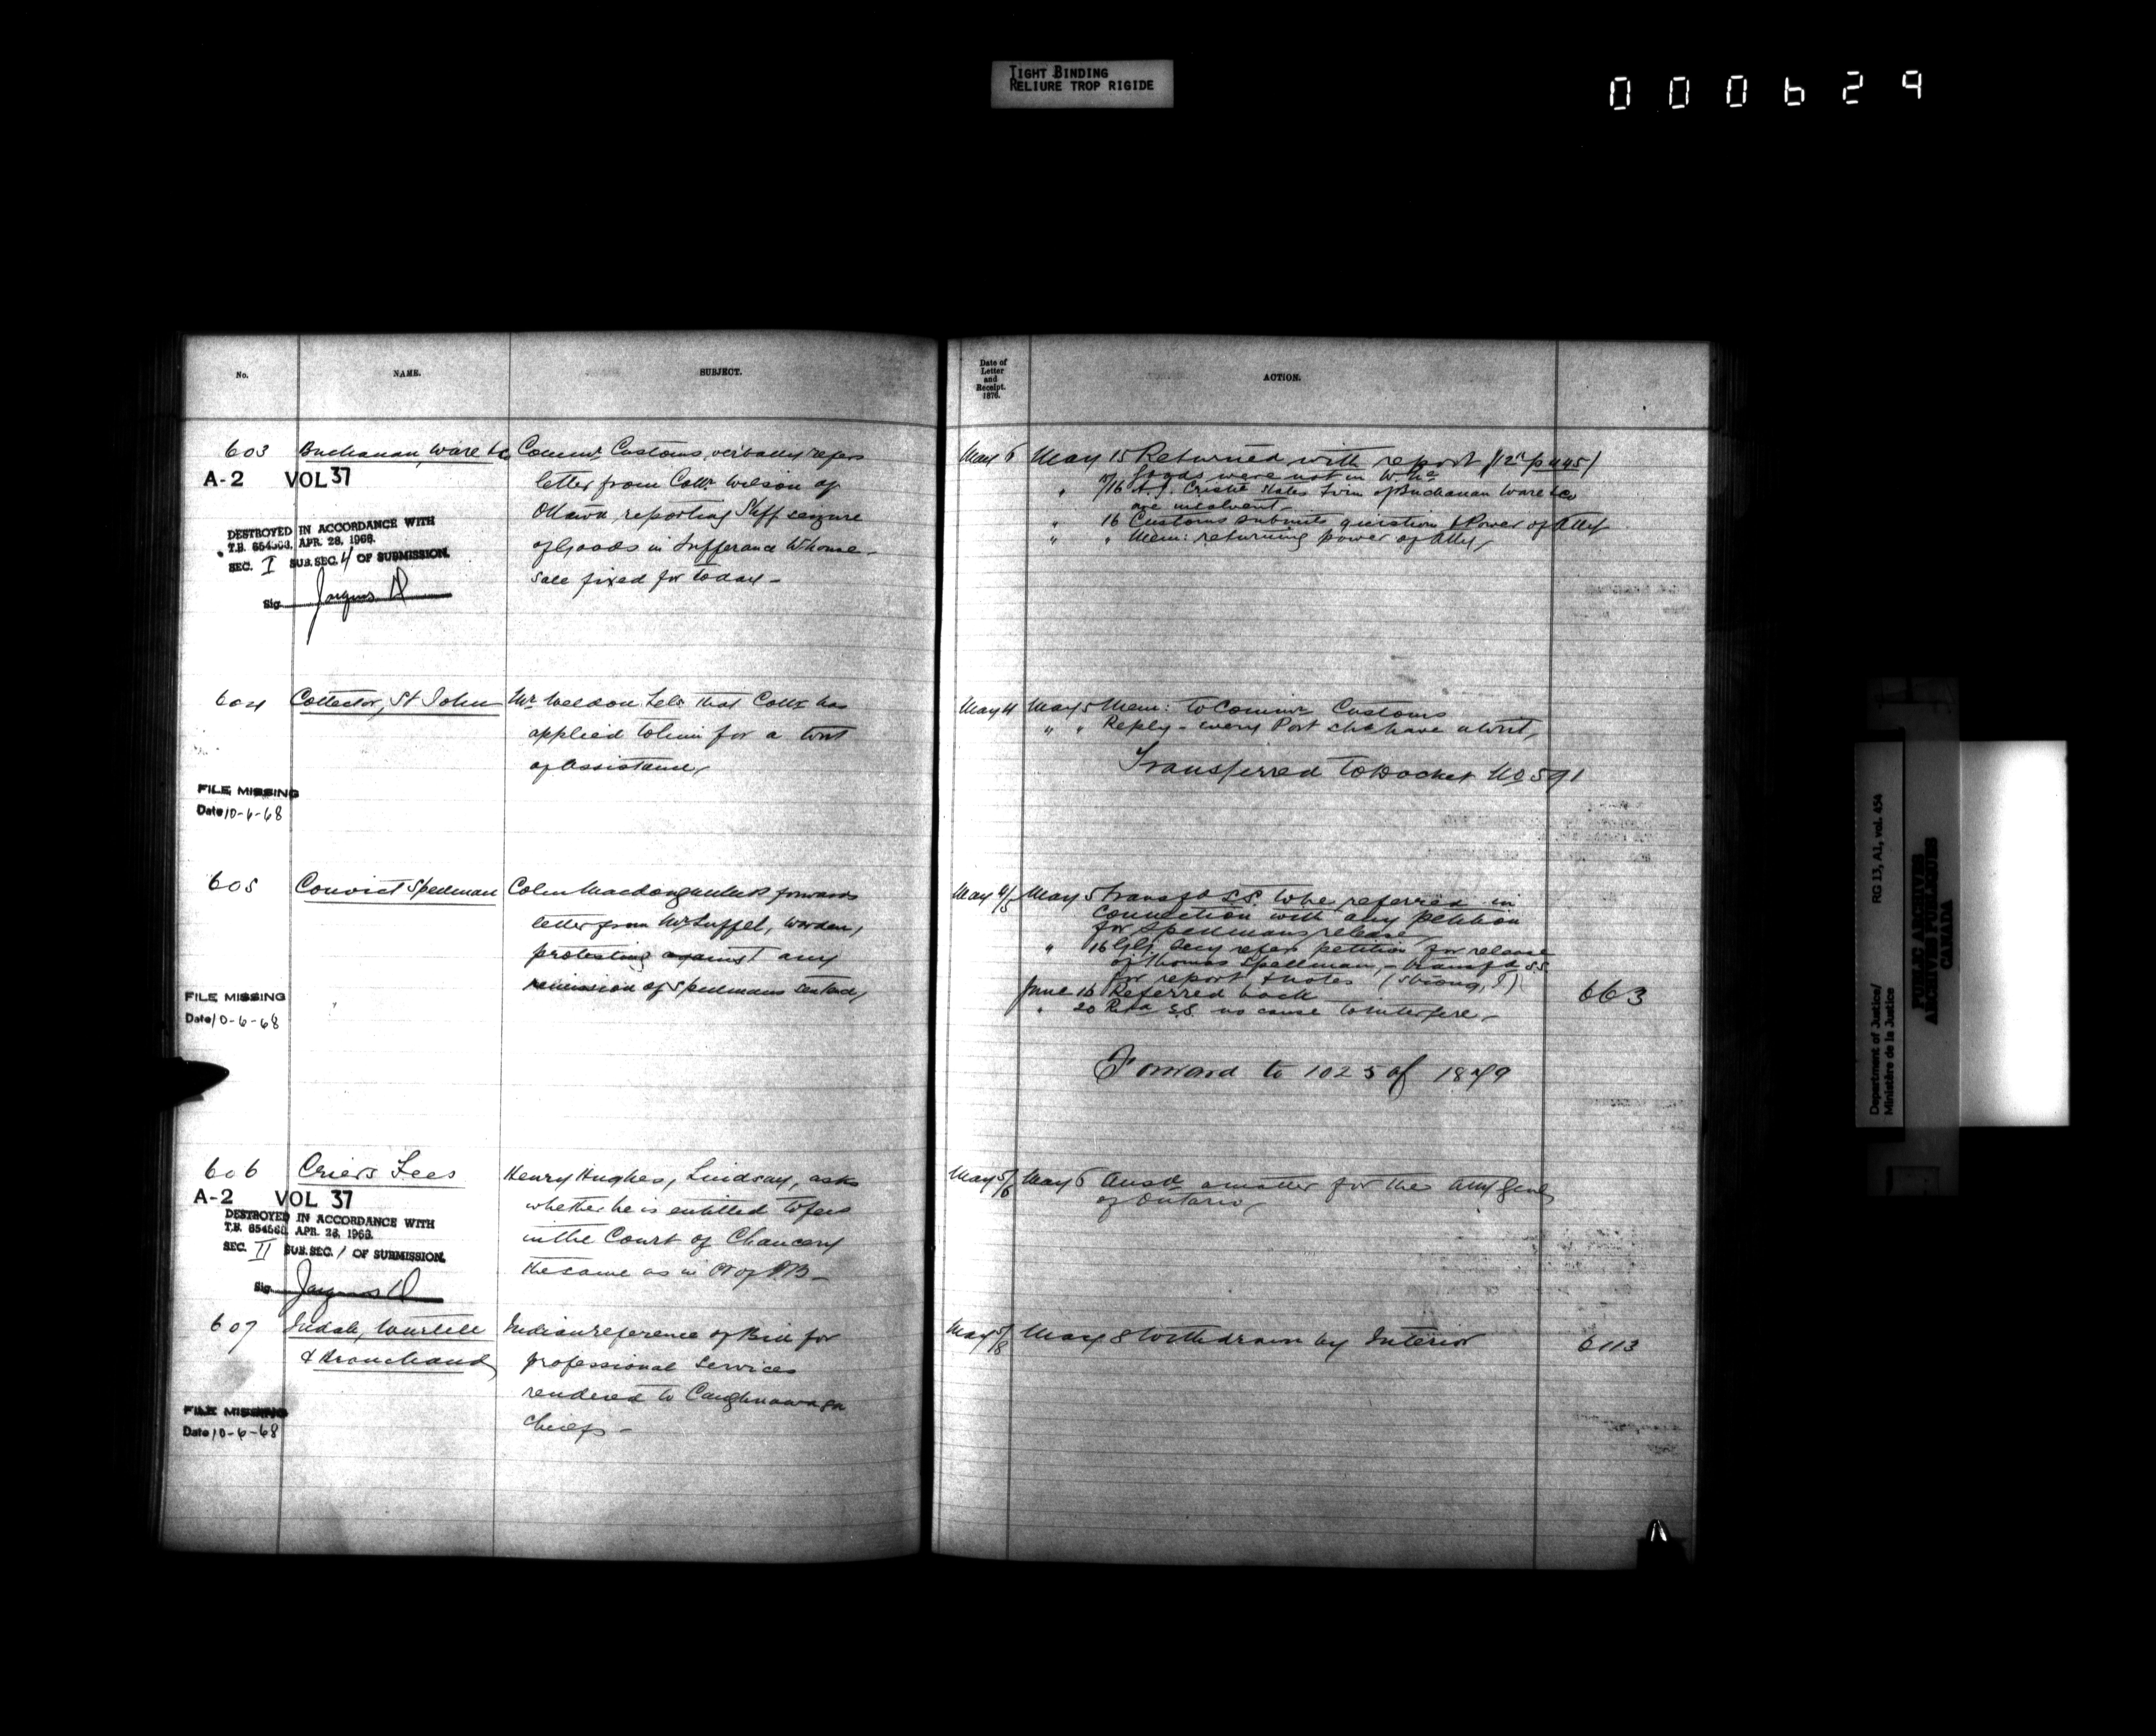 TIGHT BINDING
RELIURE TROP RIGIDE
000629
No.
NAME.
SUBJECT.
603
Buchanan, Ware & Co
Commr. Customs, verbally refers
letter from Collr. Wilson of
Ottawa, reporting Shff seizure
of Goods in Sufferance Whouse -
Sale fixed for today -
A-2 VOL 37
DESTROYED IN ACCORDANCE WITH
T.B. 654560, APR. 28, 1966.
SEC. I SUB.SEC. 4 OF SUBMISSION.
Sig.
604
Collector, St John
Mr Weldon Tels that Collr has
applied to him for a writ
of Assistance,
FILE MISSING
Date 10-6-68
605
Convict Spellman
Colin Macdougall forwards
letter from Mr, Warden,
protesting against any
remission of Spellmans sentence,
FILE MISSING
Date 10-6-68
606
Criers Fees
Henry Hughes, Lindsay, asks
whether he is entitled to fees
in the Court of Chancery
the same as in Ct of QB -
A-2 VOL 37
DESTROYED IN ACCORDANCE WITH
T.B. 654560, APR. 28, 1966.
SEC. II SUB.SEC. 1 OF SUBMISSION.
Sig.
607
Judah, Wurtele
& Branchaud
Indian reference of Bill for
professional Services
rendered to Caughnawaga
Chiefs -
FILE MISSING
Date 10-6-68
Date of
Letter
and
Receipt.
1876.
ACTION.
May 6
May 15 Returned with report
Goods were not in W. He
states firm of Buchanan Ware & Co
are insolvent -
" 16 Customs submits question & Power of Atty
" " Mem: returning power of Atty,
May 4
May 5 Mem: to Commr Customs
" " Reply - every Port shd have a Writ,
Transferred to Docket No 591
May 4/5
May 5 Transfd S.S. to be referred in
connection with any petition
for Spellmans release,
" 16 G.G. Secy refers petition for release
of Thomas Spellman, - transfd S.S.
for report & notes (Strong, J)
June 16 Referred back
" 20 Retd S.S. no cause to interfere -
663
Forward to 1025 of 1879
May 5/6
May 6 Ansd a matter for the Atty Genl
of Ontario,
May 5/8
May 8 Withdrawn by Interior
6113
Department of Justice/
Ministère de la Justice
RG 13, A1, vol. 454
PUBLIC ARCHIVES
ARCHIVES PUBLIQUES
CANADA